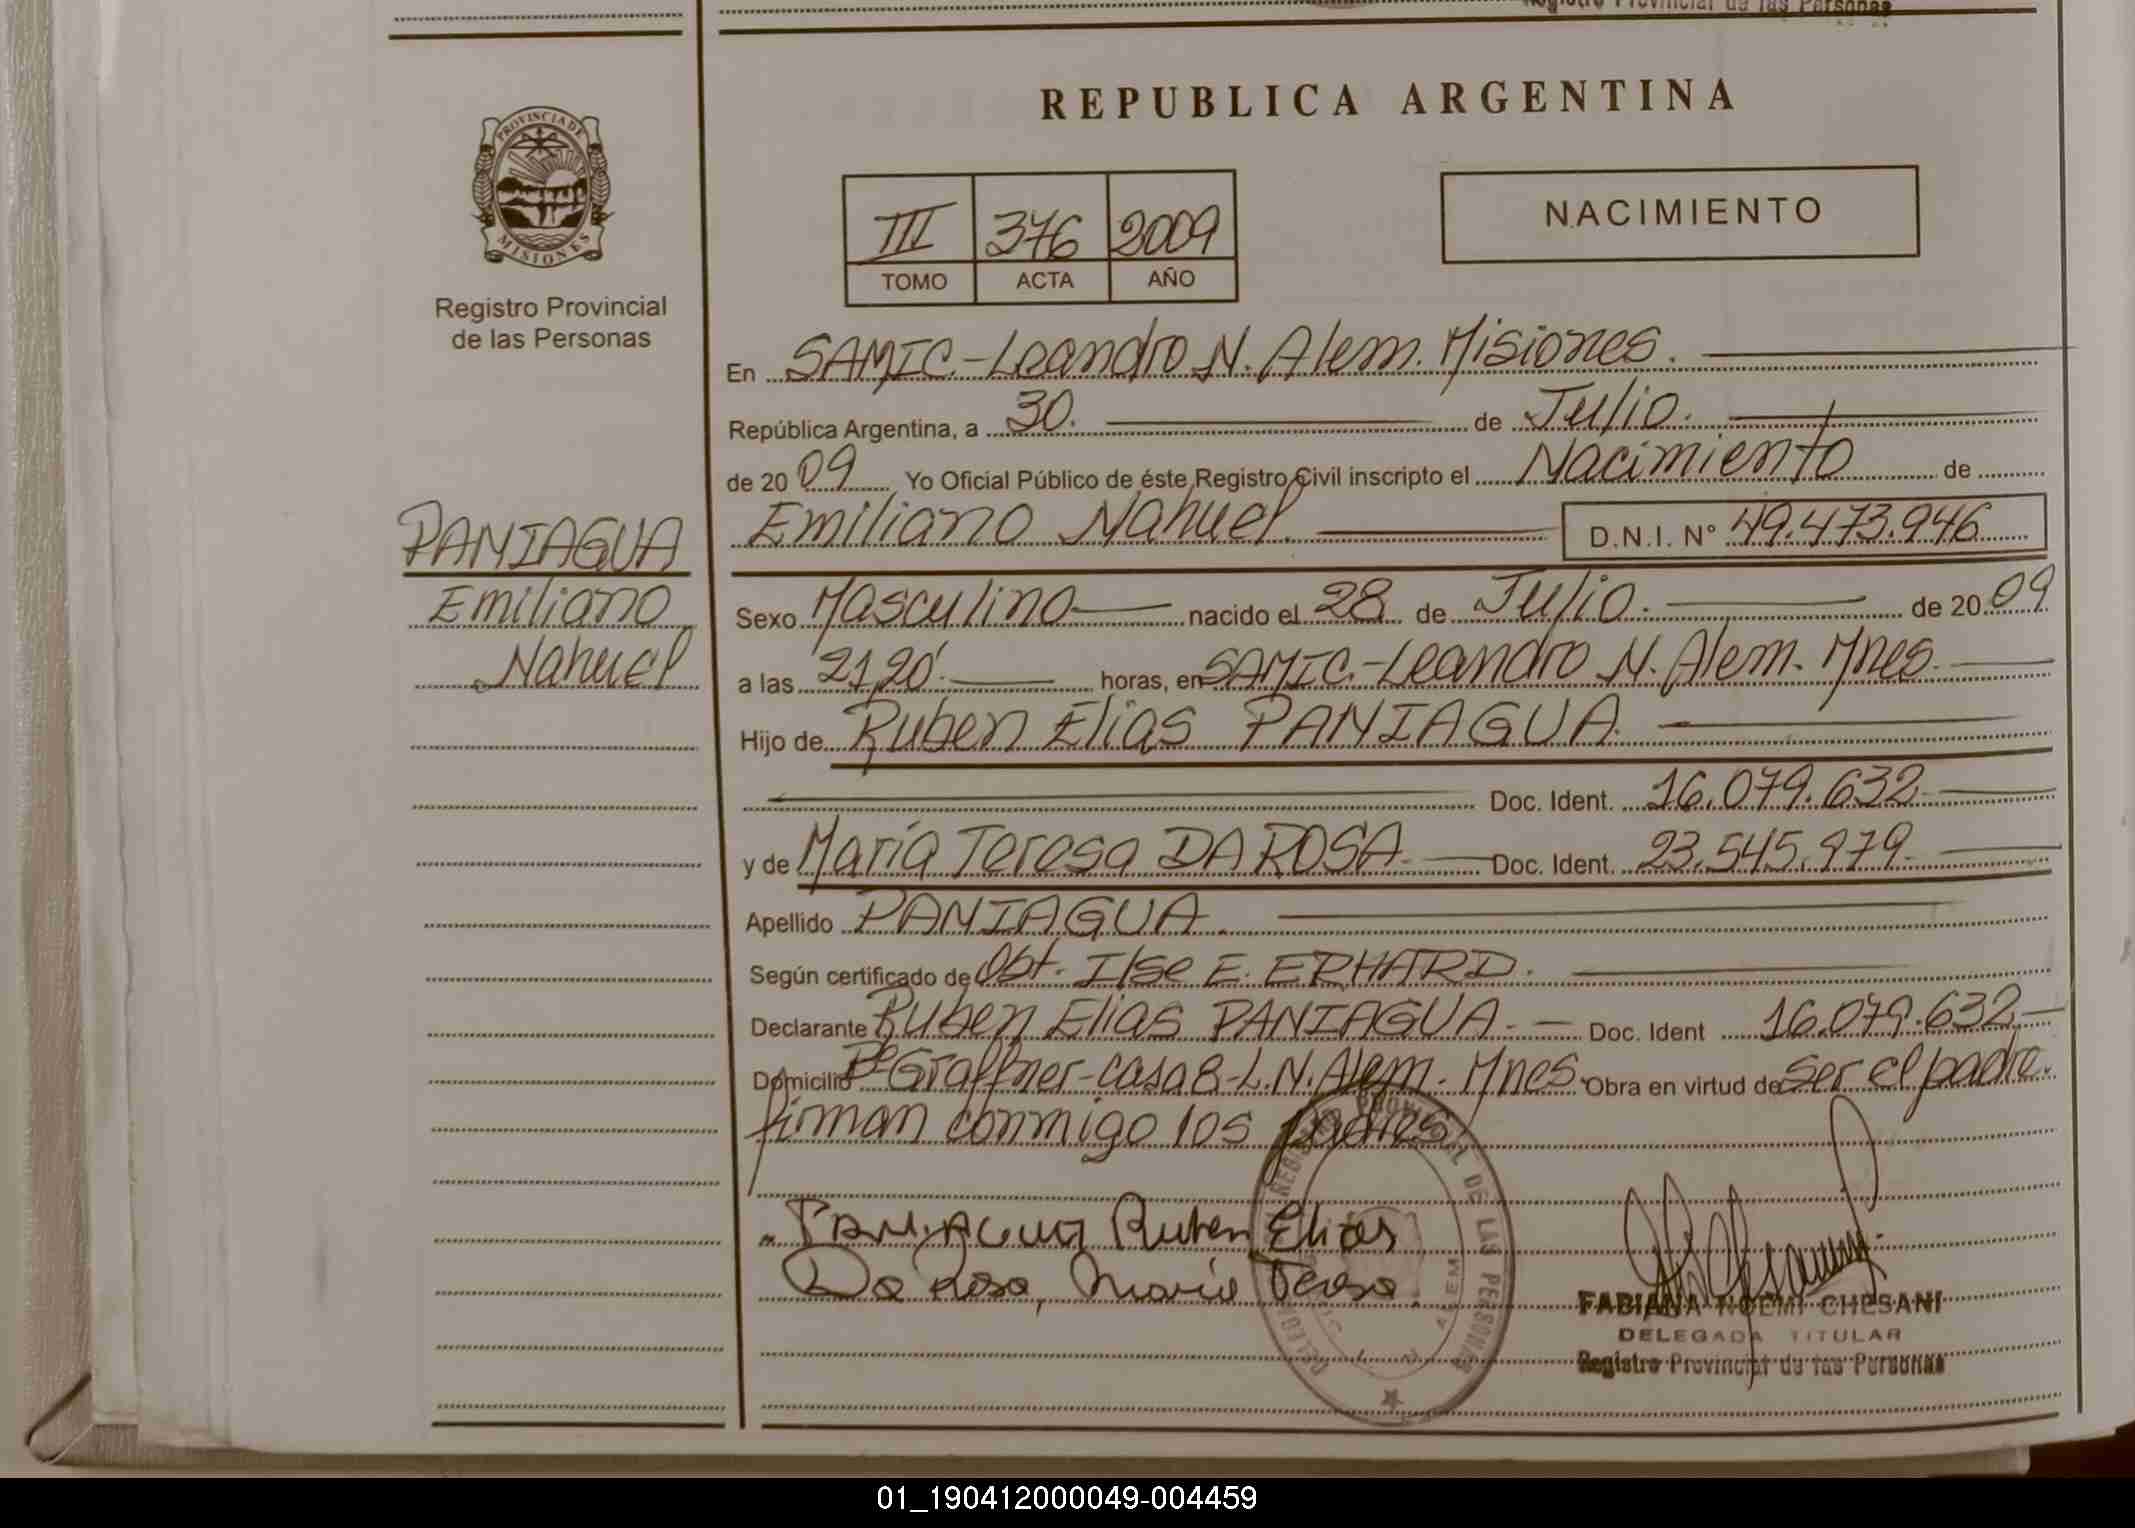 Registro Provincial de las Personas
REPUBLICA ARGENTINA
PROVINCIA DE
MISIONES
Registro Provincial
de las Personas
III 376 2009
TOMO ACTA AÑO
NACIMIENTO
PANIAGUA
Emiliano
Nahuel
En SAMIC.-Leandro N. Alem. Misiones.
República Argentina, a 30. de Julio.
de 20 09 Yo Oficial Público de éste Registro Civil inscripto el Nacimiento de
Emiliano Nahuel. D.N.I. N° 49.473.946
Sexo Masculino nacido el 28 de Julio. de 20 09
a las 21,20'. horas, en SAMIC.-Leandro N. Alem. Mnes.
Hijo de Ruben Elias PANIAGUA.
Doc. Ident. 16.079.632
y de María Teresa DA ROSA Doc. Ident. 23.545.979
Apellido PANIAGUA.
Según certificado de Obt. Ilse E. ERHARD.
Declarante Ruben Elias PANIAGUA.- Doc. Ident 16.079.632
Domicilio Bº Graffner-casa 8-L.N. Alem. Mnes. Obra en virtud de ser el padre.
firman conmigo los padres
PANIAGUA Ruben Elias
Da Rosa, Maria Teresa.
REGISTRO PROVINCIAL DE LAS PERSONAS
ALEM
FABIANA NOEMI CHESANI
DELEGADA TITULAR
Registro Provincial de las Personas
01_190412000049-004459